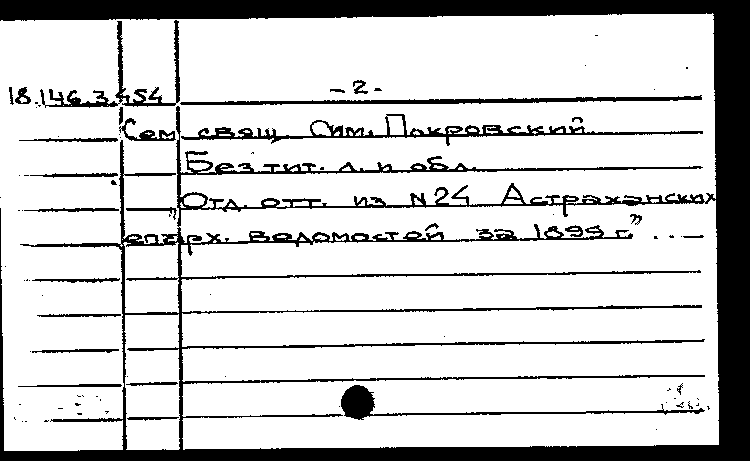 18.146.3.454 -2-
Сем свящ. Сим. Покровский.
Без тит. л. и обл.
Отд. отт. из N24 "Астраханских
епарх. ведомостей за 1899 г."...—